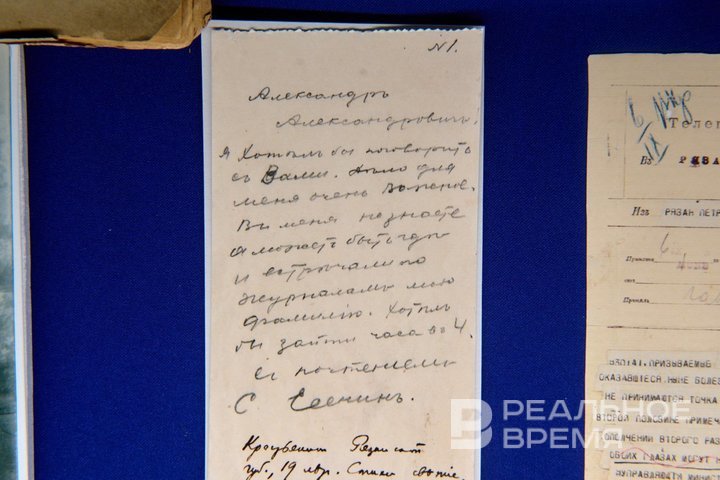 N 1.
Александръ
Александровичъ!
Я хотѣлъ бы поговорить
съ Вами. Дѣло для
меня очень важное.
Вы меня не знаете
а можетъ быть где
и встрѣчали по
журналамъ мою
фамилію. Хотѣлъ
бы зайти часа въ 4.
Съ почтеніемъ
С Есенинъ.
Крестьянин Рязанск
губ., 19 лет. Стихи свежие,
Телег
Въ РЯЗА
Изъ РЯЗАН ПЕТР
Принята
Принялъ
ПРИЗЫВАЕМЫЕ
ОКАЗАВШИЕСЯ НЫНЕ БОЛЕЗ
НЕ ПРИНИМАЮТСЯ ТОЧКА
ВТОРОЙ ПОЛОВИНЕ ПРИМЕЧА
ОПОЛЧЕНИИ ВТОРОГО РАЗ
ОБОИХ ГЛАЗАХ МОГУТ Н
РЕАЛЬНОЕ
ВРЕМЯ